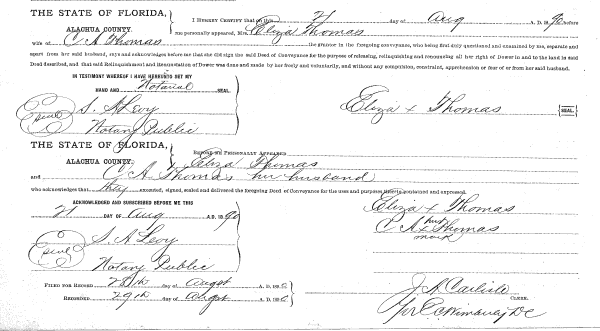 THE STATE OF FLORIDA,
ALACHUA COUNTY.
I HEREBY CERTIFY that on this 21 day of Aug A. D. 1896 before
me personally appeared, Mrs. Eliza Thomas
wife of C. A. Thomas the grantor in the foregoing conveyance, who being first duly questioned and examined by me, separate and
apart from her said husband, says and acknowledges before me that she did sign the said Deed of Conveyance for the purpose of releasing, relinquishing and renouncing all her right of Dower in and to the land in said
Deed described, and that said Relinquishment and Renunciation of Dower was done and made by her freely and voluntarily, and without any compulsion, constraint, apprehension or fear of or from her said husband.
IN TESTIMONY WHEREOF I HAVE HEREUNTO SET MY
HAND AND Notarial SEAL
S. A Levy
Notary Public
Eliza x Thomas SEAL
THE STATE OF FLORIDA,
ALACHUA COUNTY.
BEFORE ME PERSONALLY APPEARED
Eliza Thomas
and C A Thomas her husband
who acknowledges that they executed, signed, sealed and delivered the foregoing Deed of Conveyance for the uses and purposes therein contained and expressed.
ACKNOWLEDGED AND SUBSCRIBED BEFORE ME THIS
21 DAY OF Aug A. D. 1896
S. A Levy
Notary Public
Eliza x Thomas
C A x Thomas
his
mark
FILED FOR RECORD 28th day of August A. D. 1896
RECORDED 29th day of August A. D. 1896
J. A. Carlisle
CLERK.